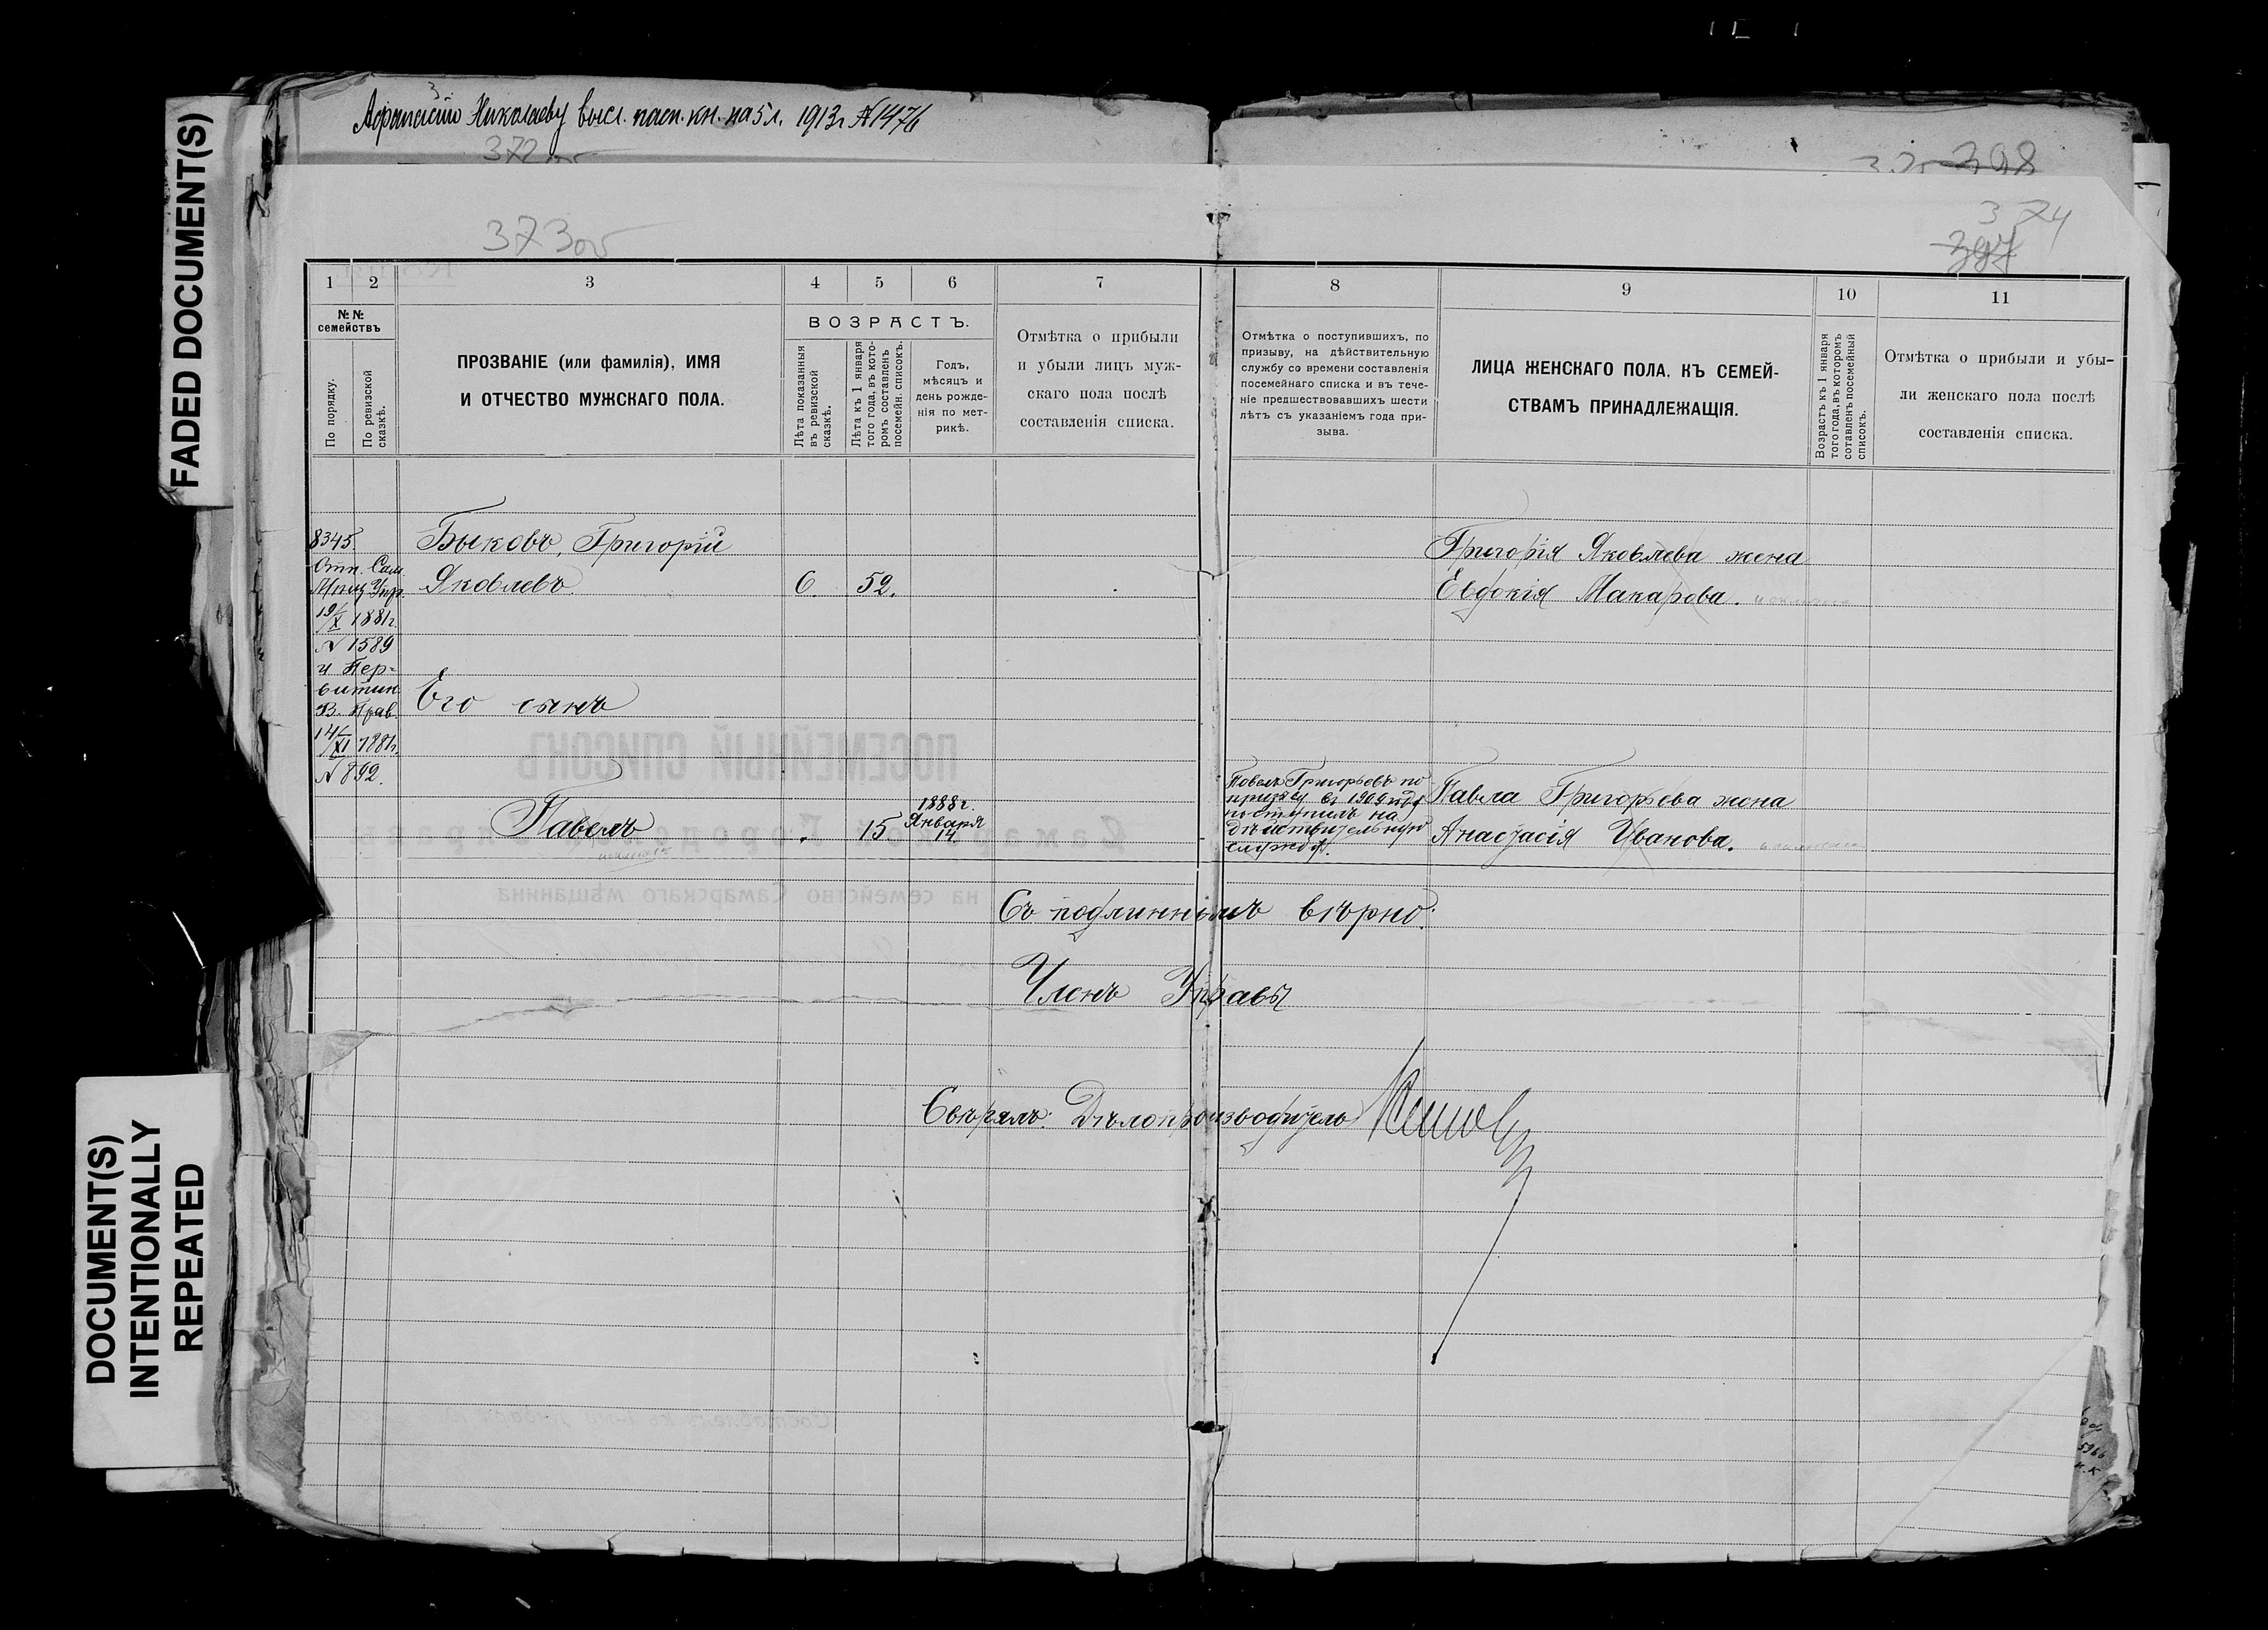 FADED DOCUMENT(S)
DOCUMENT(S)
INTENTIONALLY
REPEATED
Афанасію Николаеву высл. пасп. кн. на 5 л. 1913 г. № 1476
372 об
398
373 об
374
397
1 2 3 4 5 6 7 8 9 10 11
№№
семействъ
По порядку.
По ревизской
сказкѣ.
ПРОЗВАНІЕ (или фамилія), ИМЯ
И ОТЧЕСТВО МУЖСКАГО ПОЛА.
ВОЗРАСТЪ.
Лѣта показанныя
въ ревизской
сказкѣ.
Лѣта къ 1 января
того года, въ кото-
ромъ составленъ
посемейн. списокъ.
Годъ,
мѣсяцъ и
день рожде-
нія по мет-
рикѣ.
Отмѣтка о прибыли
и убыли лицъ муж-
скаго пола послѣ
составленія списка.
Отмѣтка о поступившихъ, по
призыву, на дѣйствительную
службу со времени составленія
посемейнаго списка и въ тече-
ніе предшествовавшихъ шести
лѣтъ съ указаніемъ года при-
зыва.
ЛИЦА ЖЕНСКАГО ПОЛА, КЪ СЕМЕЙ-
СТВАМЪ ПРИНАДЛЕЖАЩІЯ.
Возрастъ къ 1 января
того года, въ которомъ
составленъ посемейный
списокъ.
Отмѣтка о прибыли и убы-
ли женскаго пола послѣ
составленія списка.
8345.
Отп. Сам.
Мѣщ. Упр.
19/X 1881 г.
№ 1589
и Пер-
витин.
В. Прав.
14/XI 1881 г.
№ 892.
Быковъ, Григорій
Яковлевъ. 6. 52.
Григорія Яковлева жена
Евдокія Макарова.
Его сынъ
Павелъ 15
1888 г.
Января
14.
Павелъ Григорьевъ по
призыву въ 1909 году
поступилъ на
дѣйствительную
службу.
Павла Григорьева жена
Анастасія Иванова.
ПОСЕМЕЙНЫЙ СПИСОКЪ
Самарской Городской Управы
на семейство Самарскаго мѣщанина
Съ подлиннымъ вѣрно:
Членъ Управы
Свѣрялъ: Дѣлопроизводитель